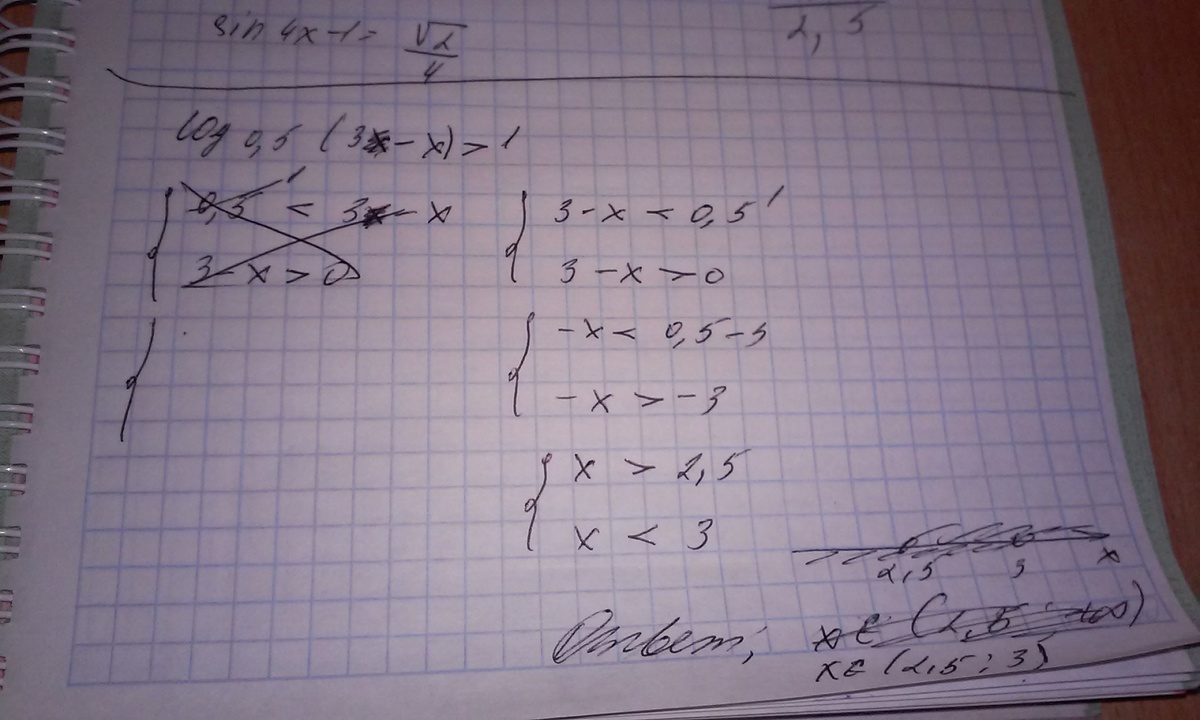 sin 4x - 1 = √2/4
2,5
log 0,5 (3 - x) > 1
0,5¹ < 3 - x
3 - x > 0
3 - x < 0,5¹
3 - x > 0
-x < 0,5 - 3
-x > -3
x > 2,5
x < 3
2,5 3 x
Ответ; x ∈ (2,5 ; +∞)
x ∈ (2,5 ; 3)